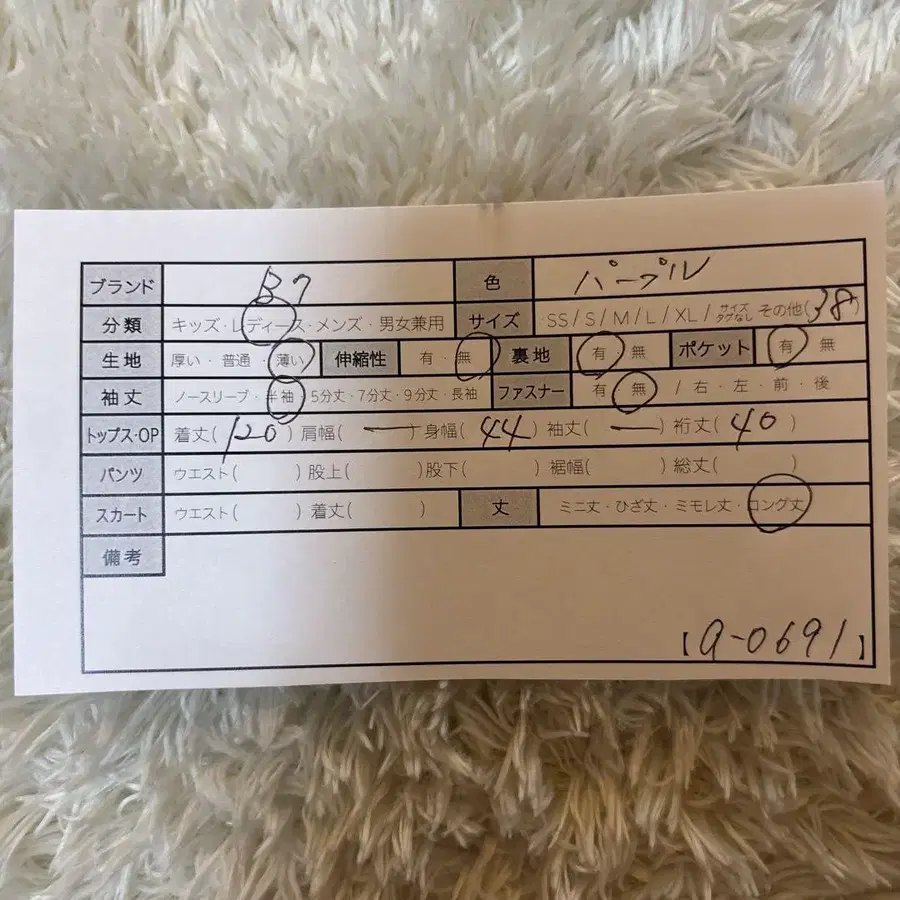 ブランド B7 色 パープル
分類 キッズ・レディース・メンズ・男女兼用 サイズ SS / S / M / L / XL / サイズタグなし その他(38)
生地 厚い・普通・薄い 伸縮性 有・無 裏地 有・無 ポケット 有・無
袖丈 ノースリーブ・半袖・5分丈・7分丈・9分丈・長袖 ファスナー 有・無 / 右・左・前・後
トップス・OP 着丈(120) 肩幅(ー) 身幅(44) 袖丈(ー) 裄丈(40)
パンツ ウエスト( ) 股上( ) 股下( ) 裾幅( ) 総丈( )
スカート ウエスト( ) 着丈( ) 丈 ミニ丈・ひざ丈・ミモレ丈・ロング丈
備考
【a-0691】